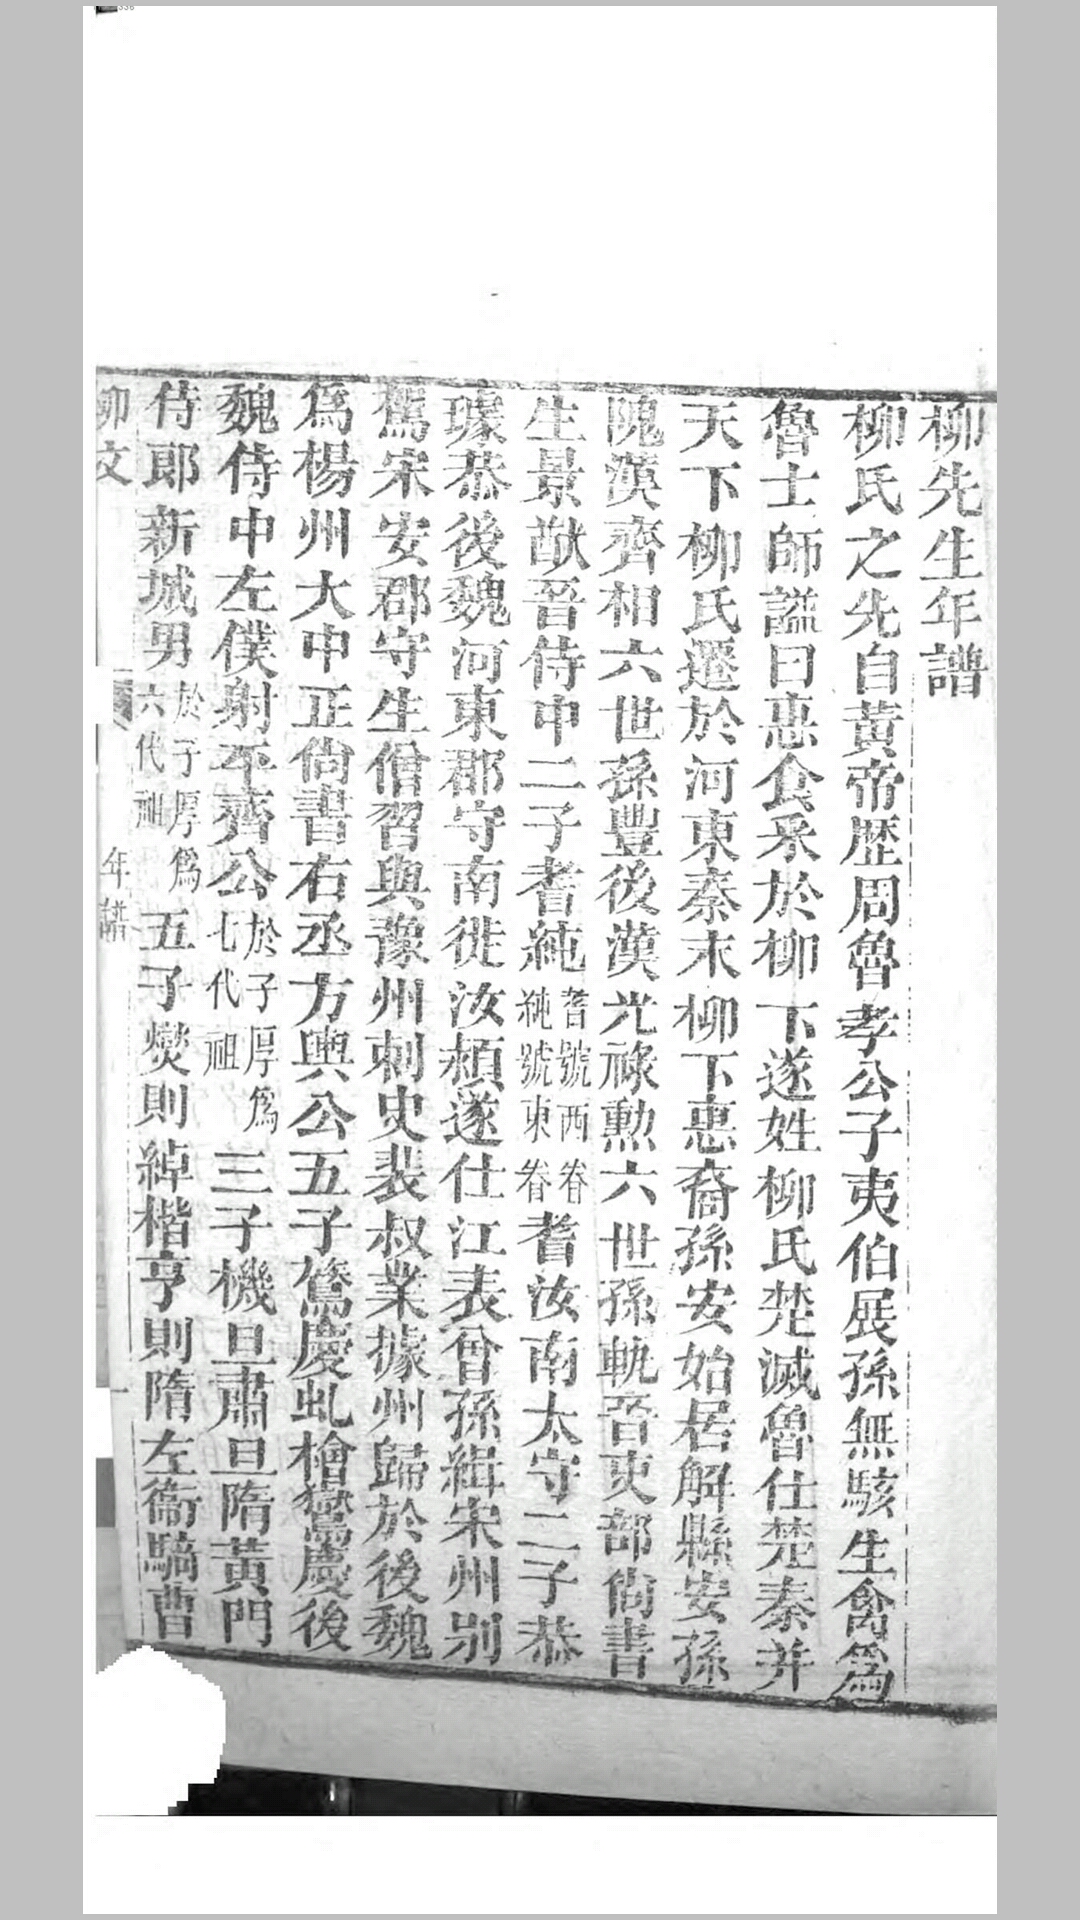 柳先生年譜
柳氏之先自黃帝歷周魯孝公子夷伯展孫無駭生禽爲
魯士師諡曰惠食采於柳下遂姓柳氏楚滅魯仕楚秦并
天下柳氏遷於河東秦末柳下惠裔孫安始居解縣安孫
隗漢齊相六世孫豐後漢光祿勲六世孫軌晉吏部尚書
生景猷晉侍中二子耆純耆號西眷純號東眷耆汝南太守二子恭
璩恭後魏河東郡守南徙汝潁遂仕江表曾孫緝宋州別
駕宋安郡守生僧習與豫州刺史裴叔業據州歸於後魏
爲楊州大中正尚書右丞方輿公五子鷟慶虬檜鷟慶後
魏侍中左僕射平齊公於子厚爲七代祖三子機旦肅旦隋黃門
侍郎新城男於子厚爲六代祖五子燮則綽楷亨則隋左衞騎曹
柳文
年譜
一